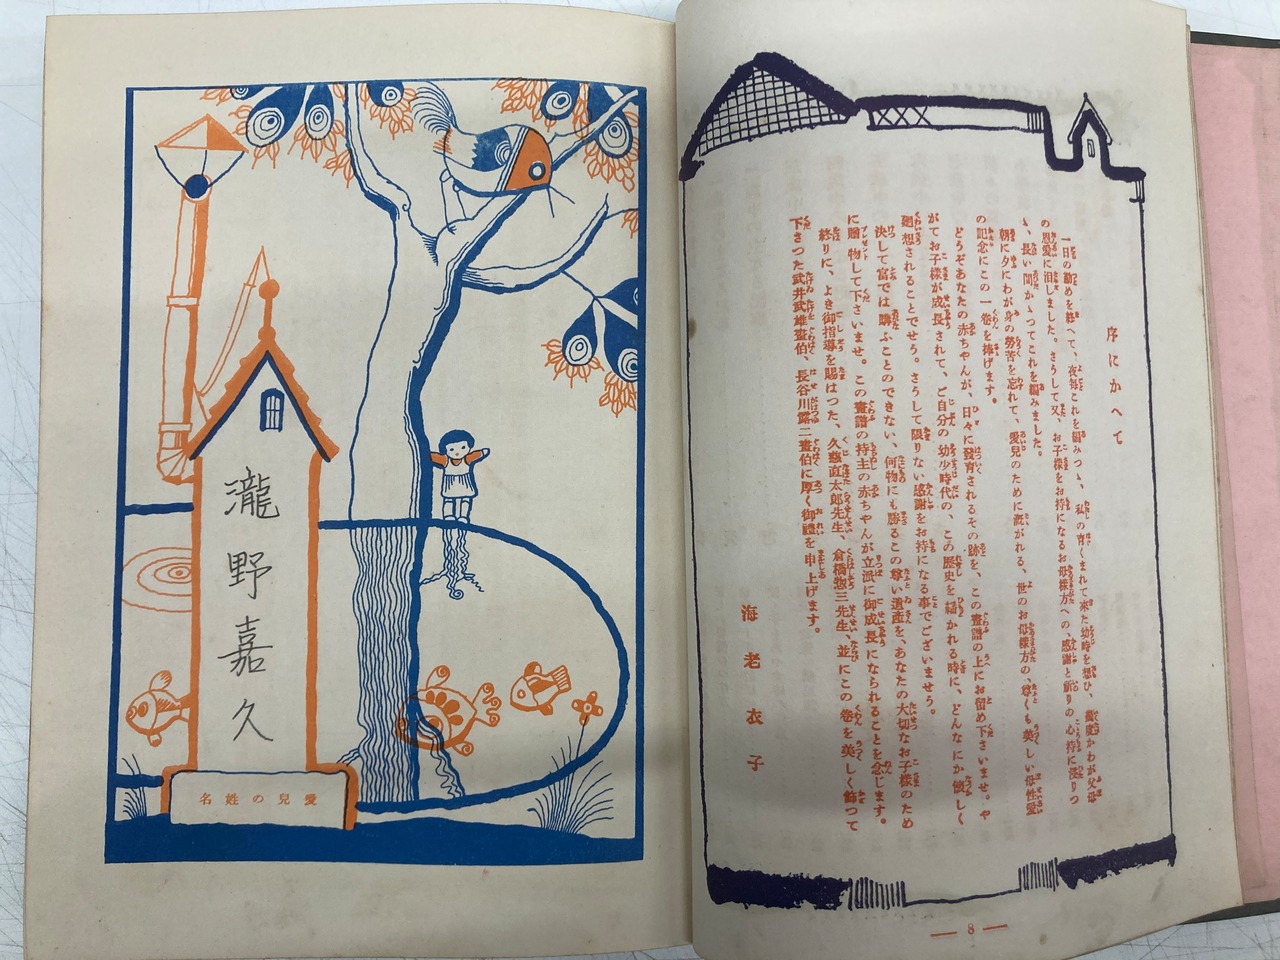 序にかへて
一日の勤めを終へて、夜毎これを編みつゝ、私の育くまれて来た幼時を想ひ、嚴肅かわが父母
の恩愛に泪しました。さうして又、お子様をお持になるお母様方への、感謝と祈りの心持に浸りつ
ゝ、長い間かゝつてこれを編みました。
朝に夕にわが身の勞苦を忘れて、愛兒のために漑がれる、世のお母様方の、尊くも美しい母性愛
の記念にこの一卷を捧げます。
どうぞあなたの赤ちやんが、日々に發育されるその跡を、この畫譜の上にお留め下さいませ。や
がてお子樣が成長されて、ご自分の幼少時代の、この歴史を繙かれる時に、どんなにか懷しく
廻想されることでせう。さうして限りない感謝をお持になる事でございませう。
決して富では購ふことのできない、何物にも勝るこの尊い遺産を、あなたの大切なお子樣のため
に贈物して下さいませ。この畫譜の持主の赤ちやんが立派に御成長になられることを念じます。
終りに、よき御指導を賜はつた、久慈直太郎先生、倉橋惣三先生、並にこの卷を美しく飾つて
下さつた武井武雄畫伯、長谷川露二畫伯に厚く御禮を申上げます。
海老衣子
8
瀧野嘉久
愛兒の姓名